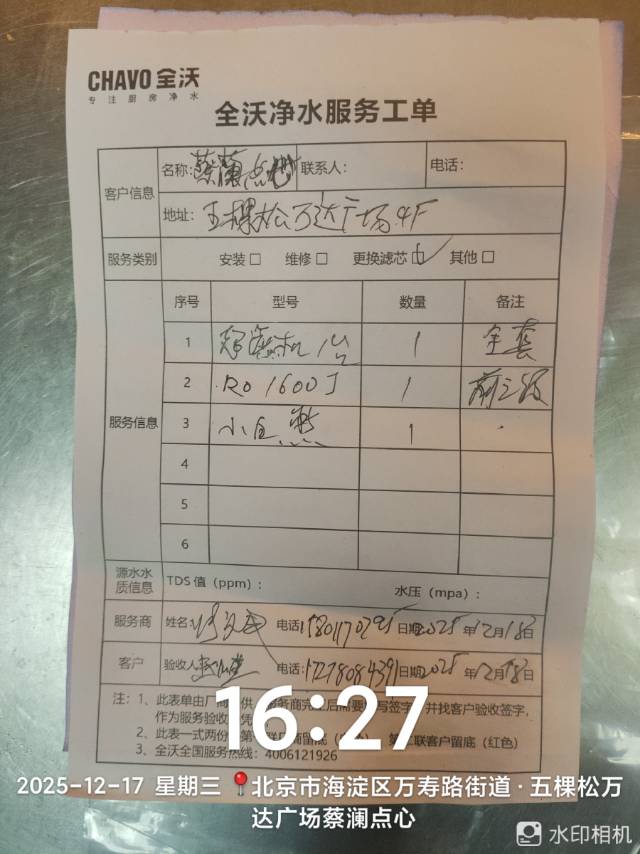 CHAVO 全沃
专注厨房净水
全沃净水服务工单
客户信息
名称：蔡蘭点心 联系人： 电话：
地址：五棵松万达广场4F
服务类别 安装□ 维修□ 更换滤芯☑ 其他□
服务信息
序号 型号 数量 备注
1 1台 1 全套
2 RO 1600J 1 前三级
3 小白熊 1
4
5
6
源水水质信息 TDS 值（ppm）： 水压（mpa）：
服务商 姓名： 电话：15801170295 日期：2025年12月18日
客户 验收人： 电话：17278084391 日期：2025年12月18日
注：1、此表单由厂 供 务商完 后需要 写签字 并找客户验收签字，
作为服务验收凭
2、此表一式两份 第 联 商留底 第二联客户留底（红色）
3、全沃全国服务热线：4006121926
16:27
2025-12-17 星期三 北京市海淀区万寿路街道·五棵松万
达广场蔡澜点心
水印相机